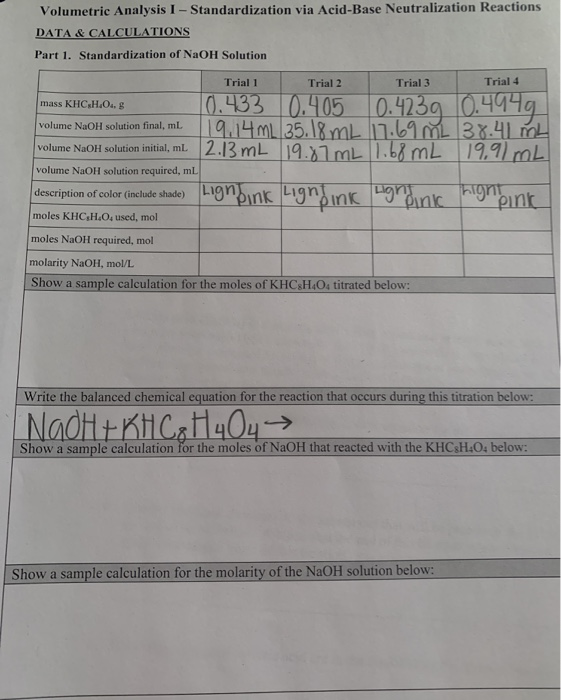 Volumetric Analysis I – Standardization via Acid-Base Neutralization Reactions
DATA & CALCULATIONS
Part 1. Standardization of NaOH Solution
Trial 1 Trial 2 Trial 3 Trial 4
mass KHC₈H₄O₄, g 0.433 0.405 0.423g 0.494g
volume NaOH solution final, mL 19.14mL 35.18mL 17.69mL 38.41mL
volume NaOH solution initial, mL 2.13mL 19.87mL 1.68mL 19.91mL
volume NaOH solution required, mL
description of color (include shade) Light pink Light pink Light pink hight pink
moles KHC₈H₄O₄ used, mol
moles NaOH required, mol
molarity NaOH, mol/L
Show a sample calculation for the moles of KHC₈H₄O₄ titrated below:
Write the balanced chemical equation for the reaction that occurs during this titration below:
NaOH+KHC₈H₄O₄→
Show a sample calculation for the moles of NaOH that reacted with the KHC₈H₄O₄ below:
Show a sample calculation for the molarity of the NaOH solution below: